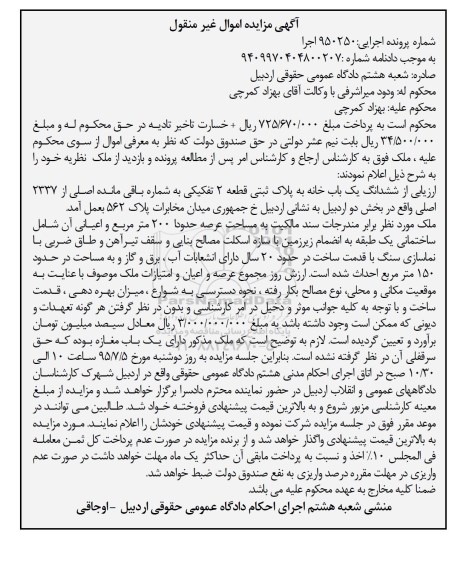 آگهی مزایده اموال غیر منقول
شماره پرونده اجرایی:۹۵۰۲۵۰ اجرا
به موجب دادنامه شماره :۹۴۰۹۹۷۰۴۰۴۸۰۰۲۰۷
صادره: شعبه هشتم دادگاه عمومی حقوقی اردبیل
محکوم له: ودود میراشرفی با وکالت آقای بهزاد کمرچی
محکوم علیه: بهزاد کمرچی
محکوم است به پرداخت مبلغ ۷۲۵/۶۷۰/۰۰۰ ریال + خسارت تاخیر تادیه در حق محکوم لـه و مبلـغ
۳۴/۵۰۰/۰۰۰ ریال بابت نیم عشر دولتی در حق صندوق دولت که نظر به معرفی اموال از سـوی محکـوم
علیه ، ملک فوق به کارشناس ارجاع و کارشناس امر پس از مطالعه پرونده و بازدید از ملک نظریه خـود را
به شرح ذیل اعلام نمودند:
ارزیابی از ششدانگ یک باب خانه به پلاک ثبتی قطعه ۲ تفکیکی به شماره باقی مانـده اصلـی از ۲۳۳۷
اصلی واقع در بخش دو اردبیل به نشانی اردبیل خ جمهوری میدان مخابرات پلاک ۵۶۲ بعمل آمد.
ملک مورد نظر برابر مندرجات سند مالکیت به مساحت عرصه حدودا ۲۰۰ متر مربـع و اعیـانی آن شـامل
ساختمانی یک طبقه به انضمام زیرزمین با سازه اسکلت مصالح بنایی و سقف تیـرآهن و طـاق ضربـی بـا
نماسازی سنگ با قدمت ساخت در حدود ۲۰ سال دارای انشعابات آب ، برق و گـاز و بـه مسـاحت در حـدود
۱۵۰ متر مربع احداث شده است. ارزش روز مجموع عرصه و اعیان و امتیازات ملک موصوف با عنایـت بـه
موقعیت مکانی و محلی، نوع مصالح بکار رفته ، نحوه دسترسـی بـه شـوارع ، میـزان بهـره دهـی ، قـدمت
ساخت و با توجه به کلیه جوانب موثر و دخیل در امر کارشناسی و بدون در نظر گرفتن هر گونه تعهـدات و
دیونی که ممکن است وجود داشته باشد به مبلغ ۳/۰۰۰/۰۰۰/۰۰۰ ریال معـادل سیـصد میلیـون تومـان
برآورد و تعیین گردیده است. لازم به توضیح است که ملک مذکور دارای یـک بـاب مغـازه بـوده کـه حـق
سرقفلی آن در نظر گرفته نشده است. بنابراین جلسه مزایده به روز دوشنبه مورخ ۹۵/۷/۵ سـاعت ۱۰ الـی
۱۰/۳۰ صبح در اتاق اجرای احکام مدنی هشتم دادگاه عمومی حقوقی واقع در اردبیل شـهرک کارشناسـان
دادگاههای عمومی و انقلاب اردبیل در حضور نماینده محترم دادسرا برگزار خواهـد شـد و مزایـده از مبلـغ
معینه کارشناسی مزبور شروع و به بالاترین قیمت پیشنهادی فروختـه خـواد شـد. طـالبین مـی تواننـد در
موعد مقرر فوق در جلسه مزایده شرکت نموده و قیمت پیشنهادی خودشان را اعلام نماینـد. مـورد مزایـده
به بالاترین قیمت پیشنهادی واگذار خواهد شد و از برنده مزایده در صورت عدم پرداخت کل ثمـن معاملـه
فی المجلس ۱۰٪ اخذ و نسبت به پرداخت مابقی آن حداکثر یک ماه مهلت خواهد داشت در صورت عدم
واریزی در مهلت مقرره درصد واریزی به نفع صندوق دولت ضبط خواهد شد.
ضمنا کلیه مخارج به عهده محکوم علیه می باشد.
منشی شعبه هشتم اجرای احکام دادگاه عمومی حقوقی اردبیل -اوجاقی